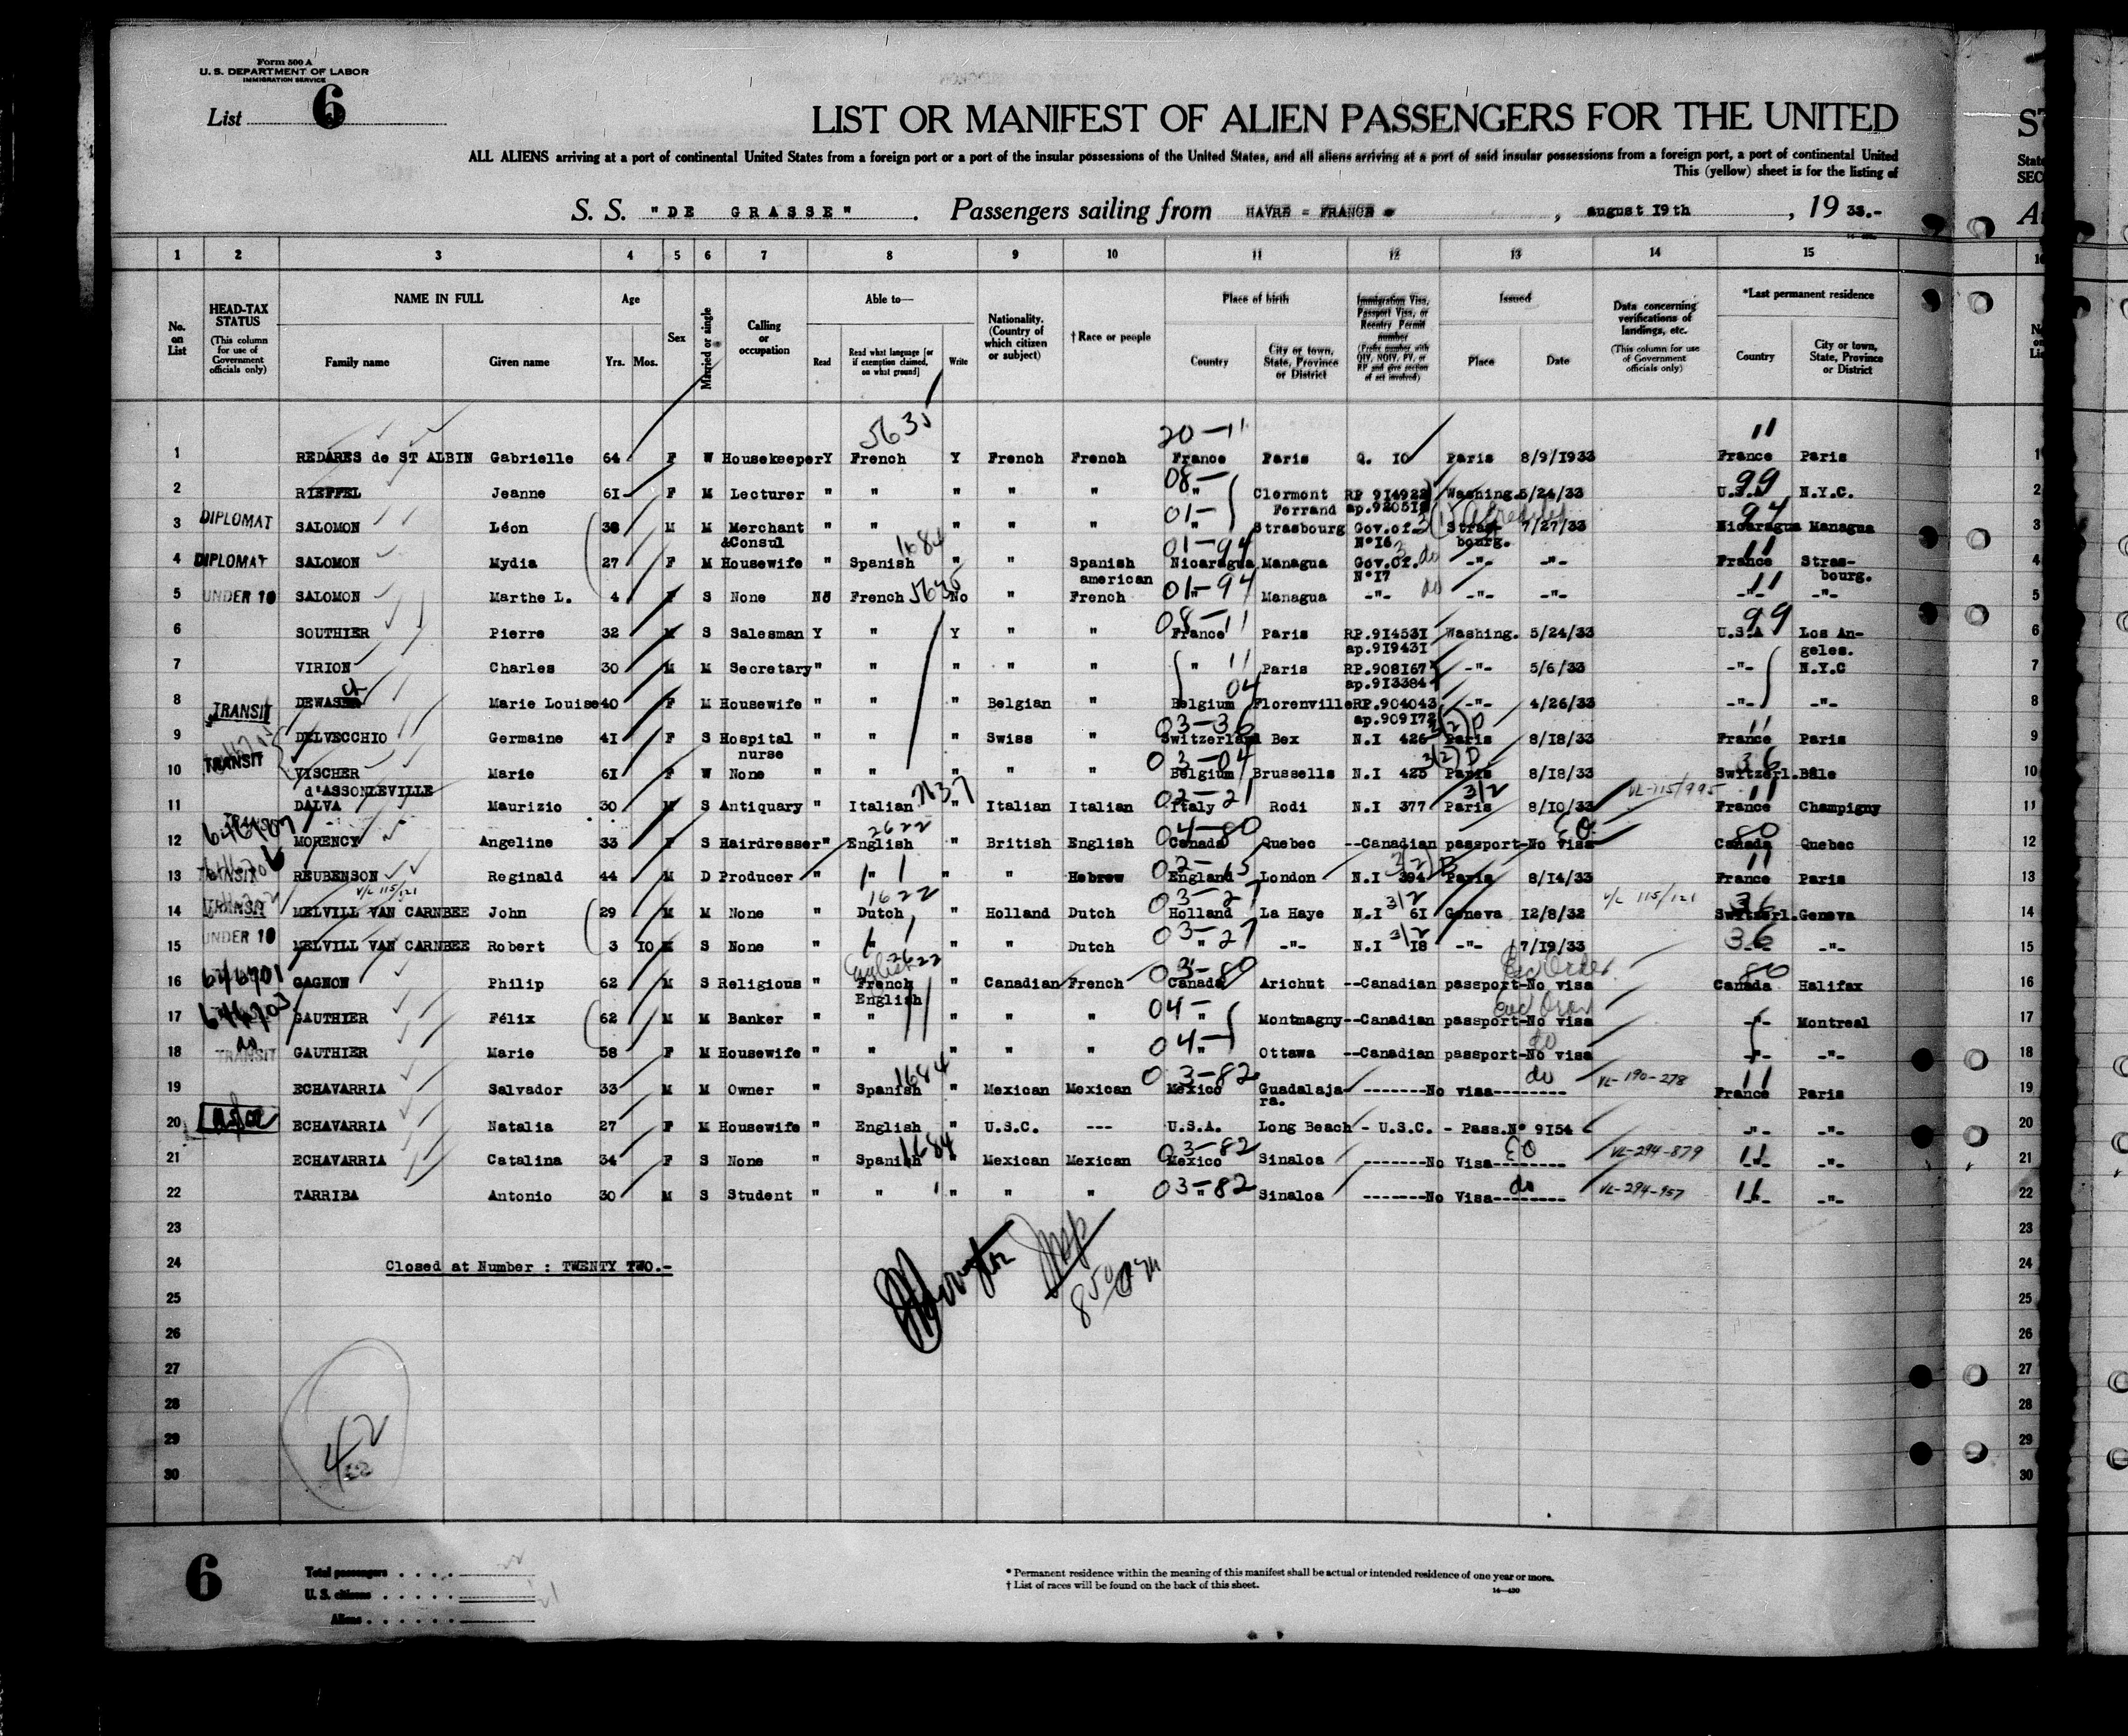 Form 500 A
U. S. DEPARTMENT OF LABOR
IMMIGRATION SERVICE
List 6
LIST OR MANIFEST OF ALIEN PASSENGERS FOR THE UNITED
ALL ALIENS arriving at a port of continental United States from a foreign port or a port of the insular possessions of the United States, and all aliens arriving at a port of said insular possessions from a foreign port, a port of continental United
This (yellow) sheet is for the listing of
S. S. "DE GRASSE" . Passengers sailing from HAVRE = FRANCE , august 19th , 19 33.-
1 2 3 4 5 6 7 8 9 10 11 12 13 14 15
No. on List
HEAD-TAX STATUS (This column for use of Government officials only)
NAME IN FULL Family name Given name
Age Yrs. Mos.
Sex
Married or single
Calling or occupation
Able to— Read Read what language [or if exemption claimed, on what ground] Write
Nationality. (Country of which citizen or subject)
† Race or people
Place of birth Country City or town, State, Province or District
Immigration Visa, Passport Visa, or Reentry Permit number (Prefix number with QIV, NQIV, PV, or RP and give section of act involved)
Issued Place Date
Data concerning verifications of landings, etc. (This column for use of Government officials only)
*Last permanent residence Country City or town, State, Province or District
5635 20-11 11
1 REDARES de ST ALBIN Gabrielle 64 F W Housekeeper Y French Y French French France Paris Q. 10 Paris 8/9/1933 France Paris 1
08- 99
2 RIEFFEL Jeanne 61 F M Lecturer " " " " " " Clermont Ferrand RP 914922 ap.920513 Washing. 5/24/33 U.S.A N.Y.C. 2
01- 94
3 DIPLOMAT SALOMON Léon 38 M M Merchant &Consul " " " " " " Strasbourg Gov.of. N°16 Stras-bourg. 7/27/33 Nicaragua Managua 3
1684 01-94 do 11
4 DIPLOMAT SALOMON Mydia 27 F M Housewife " Spanish " " Spanish american Nicaragua Managua Gov.Of. N°17 -"- -"- France Stras-bourg. 4
5635 01-94 do 11
5 UNDER 10 SALOMON Marthe L. 4 F S None No French No " French " Managua -"- -"- -"- -"- -"- 5
08-11 99
6 SOUTHIER Pierre 32 M S Salesman Y " Y " " France Paris RP.914531 ap.919431 Washing. 5/24/33 U.S.A Los An-geles. 6
11
7 VIRION Charles 30 M M Secretary " " " " " " Paris RP.908167 ap.913384 -"- 5/6/33 -"- N.Y.C 7
04
8 TRANSIT Marie Louise 40 F M Housewife " " " Belgian " Belgium Florenville RP.904043 ap.909172 -"- 4/26/33 -"- -"- 8
03-36 3(2) D 11
9 DELVECCHIO Germaine 41 F S Hospital nurse " " " Swiss " Switzerland Bex N.I 426 Paris 8/18/33 France Paris 9
03-04 3(2) D 36
10 TRANSIT VISCHER d'ASSONLEVILLE Marie 61 F W None " " " " " Belgium Brussells N.I 425 Paris 8/18/33 Switzerl. Bâle 10
7637 02-21 3/2 VL-115/995 11
11 DALVA Maurizio 30 M S Antiquary " Italian " Italian Italian Italy Rodi N.I 377 Paris 8/10/33 France Champigny 11
2622 04-80 EO 80
12 MORENCY Angeline 33 F S Hairdresser " English " British English Canada Quebec --Canadian passport-No visa Canada Quebec 12
02-15 3(2) 11
13 REUBENSON Reginald 44 M D Producer " " " " Hebrew England London N.I 394 Paris 8/14/33 France Paris 13
V/L 115/121 1622 03-27 3/2 V/L 115/121 36
14 TRANSIT MELVILL VAN CARNBEE John 29 M M None " Dutch " Holland Dutch Holland La Haye N.I 61 Geneva 12/8/32 Switzerl. Geneva 14
03-27 3/2 36
15 UNDER 10 MELVILL VAN CARNBEE Robert 3 10 M S None " " " " Dutch " -"- N.I 18 -"- 7/19/33 -"- 15
English 2622 03-80 Exc Order 80
16 646701 GAGNON Philip 62 M S Religious " French English " Canadian French Canada Arichut --Canadian passport-No visa Canada Halifax 16
04-
17 646703 GAUTHIER Félix 62 M M Banker " " " " " " Montmagny --Canadian passport-No visa -"- Montreal 17
04- do
18 do TRANSIT GAUTHIER Marie 58 F M Housewife " " " " " " Ottawa --Canadian passport-No visa -"- -"- 18
1684 03-82 do VL-190-278 11
19 ECHAVARRIA Salvador 33 M M Owner " Spanish " Mexican Mexican Mexico Guadalaja-ra. -------No visa-------- France Paris 19
20 ECHAVARRIA Natalia 27 F M Housewife " English " U.S.C. --- U.S.A. Long Beach - U.S.C. - Pass.N° 9154 -"- -"- 20
1684 03-82 EO VL-294-879 11
21 ECHAVARRIA Catalina 34 F S None " Spanish " Mexican Mexican Mexico Sinaloa -------No Visa-------- -"- -"- 21
03-82 do VL-294-957 11
22 TARRIBA Antonio 30 M S Student " " " " " " Sinaloa -------No Visa-------- -"- -"- 22
23 23
24 Closed at Number : TWENTY TWO.- 24
850 am
25 25
26 26
27 27
28 28
29 42 29
30 30
6
Total passengers . . . .
U. S. citizens . . . . .
Aliens . . . . . .
* Permanent residence within the meaning of this manifest shall be actual or intended residence of one year or more.
† List of races will be found on the back of this sheet.
14—430